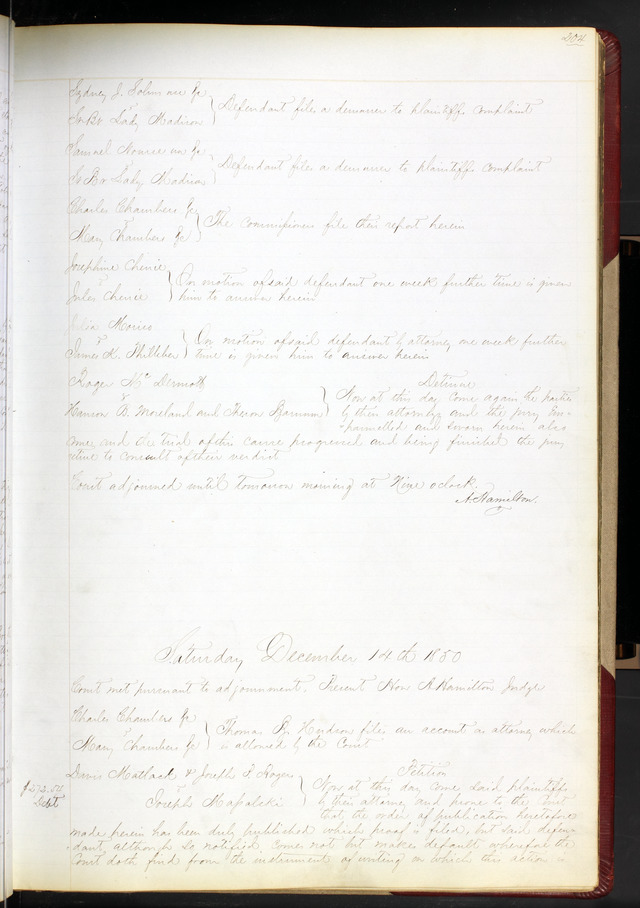 204
Sydney J. &c
vs
St Bt Lady Madison } Defendant files a demurrer to plaintiffs complaint
Samuel &c
vs
St Bt Lady Madison } Defendant files a demurrer to plaintiffs complaint
Charles Chambers &c
vs
Mary Chambers &c } The commissioners file their report herein
Josephine Chenie
vs
Jules Chenie } On motion of said defendant one week further time is given
him to answer herein
vs
James K. } On motion of said defendant by attorney one week further
time is given him to answer herein
Roger McDermott
vs
Hanson B. Moreland and Theron Barnum } Detinue
Now at this day come again the parties
by their attorneys and the jury em-
-pannelled and sworn herein also
come, and the trial of this cause progressed and being finished the jury
retire to consult of their verdict
Court adjourned until tomorrow morning at Nine oclock.
A. Hamilton.
Saturday December 14th 1850
Court met pursuant to adjournment. Present Hon A Hamilton Judge
Charles Chambers &c
vs
Mary Chambers &c } Thomas B. Hudson files an account as attorney which
is allowed by the Court
Matlack & Joseph J. Rogers
vs
Joseph } Petition
Now at this day come said plaintiffs
$272.54
Debt
by their attorney and prove to the Court
that the order of publication heretofore
made herein has been duly published which proof is filed, but said defen-
-dant, although so notified, comes not but makes default, wherefore the
Court doth find from the instrument of writing on which this action is